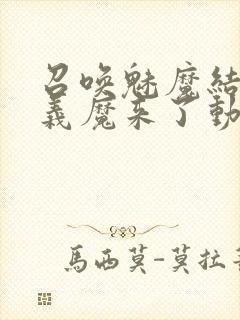 召喚魅魔結
義魔來了動
馬西莫-莫拉